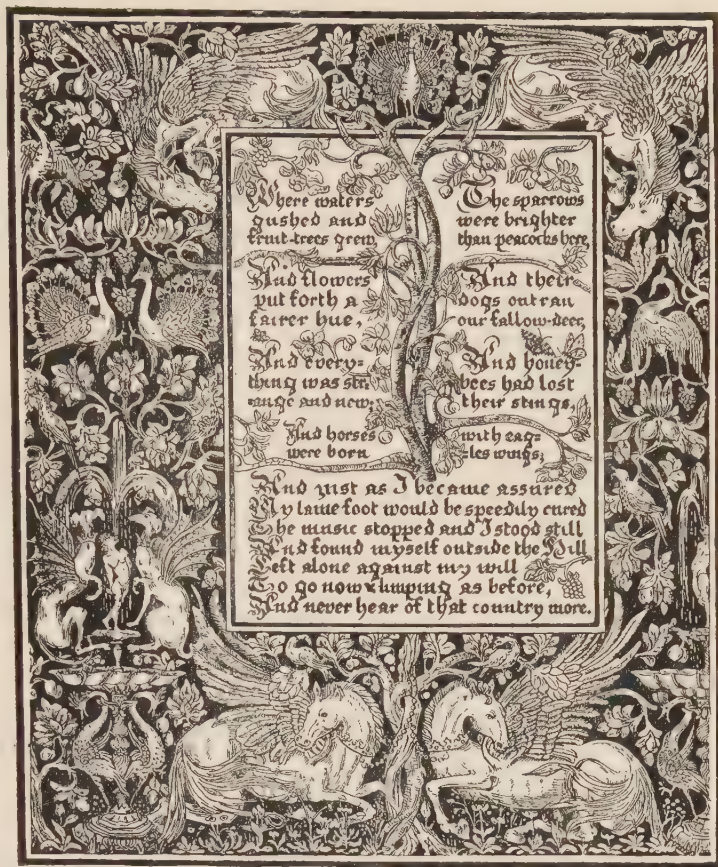 Where waters
gushed and
fruit-trees grew,
And flowers
put forth a
fairer hue,
And every-
thing was str-
-ange and new;
The sparrows
were brighter
than peacocks here,
And their
dogs outran
our fallow-deer,
And honey-
bees had lost
their stings,
And horses
were born
with eag-
-les wings;
And just as I became assured
My lame foot would be speedily cured
The music stopped and I stood still
And found myself outside the Hill
Left alone against my will
To go now limping as before,
And never hear of that country more.